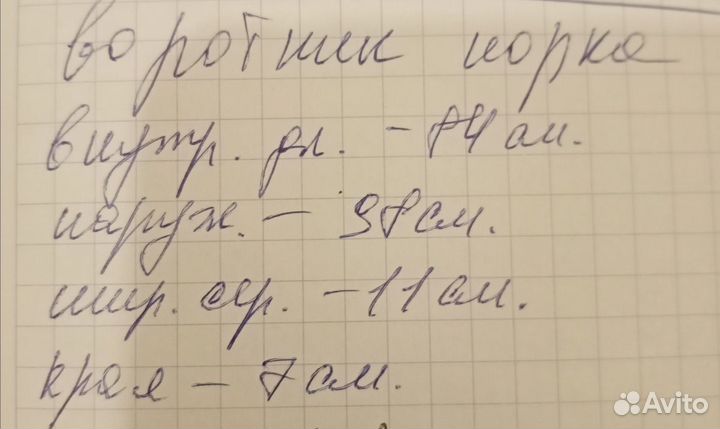 воротник норка
внутр. дл. - 84 см.
наруж. - 98 см.
шир. ср. - 11 см.
края - 7 см.
Avito